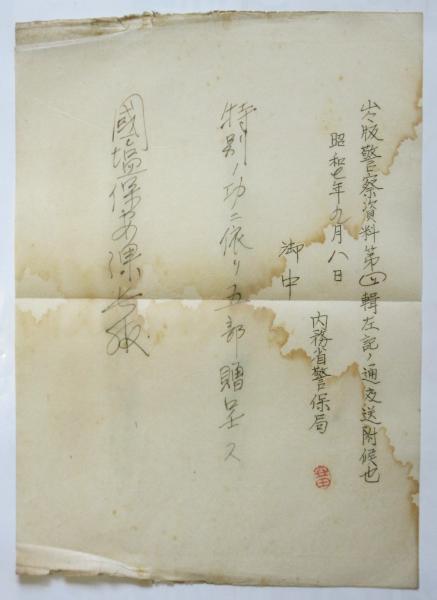 出版警察資料第四輯左記ノ通及送附候也
昭和七年九月八日
内務省警保局
御中
特別ノ功ニ依リ五部贈呈ス
保安課